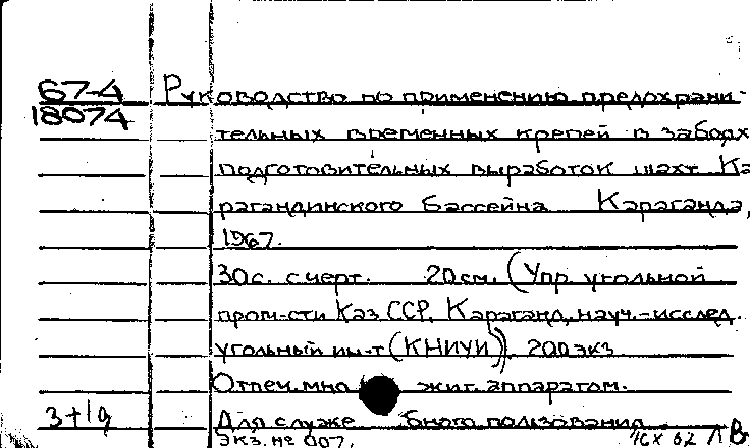 67-4 Руководство по применению предохрани-
18074 тельных временных крепей в забоях
подготовительных выработок шахт Ка
рагандинского бассейна. Караганда,
1967.
30 с. с черт. 20 см. (Упр. угольной
пром-сти Каз ССР. Караганд. науч.-исслед.
угольный ин-т (КНИУИ)). 200 экз.
Отпеч. мно жит. аппаратом.
3+1д Для служе бного пользования
Экз. № 007.